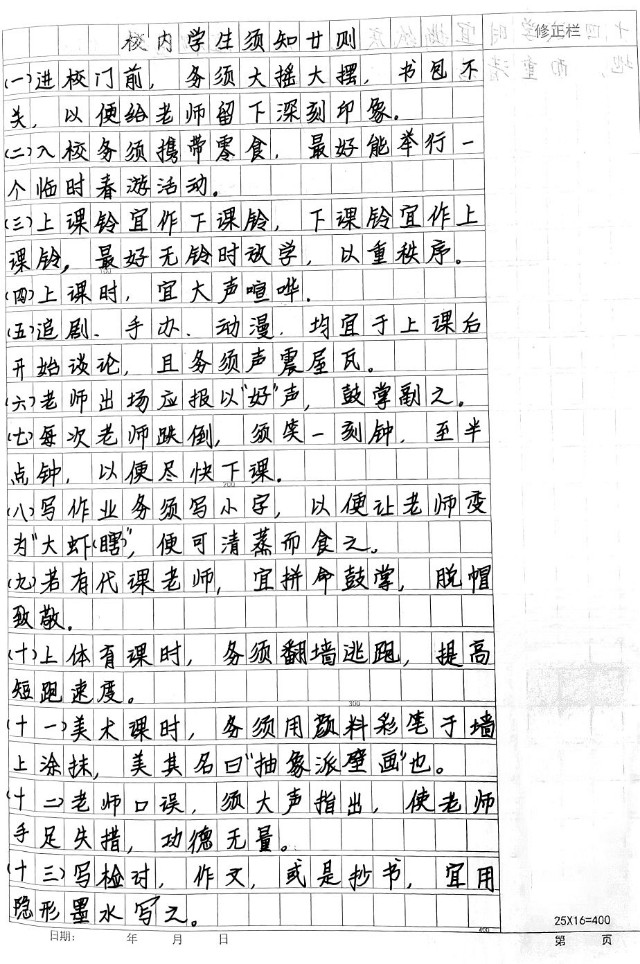 修正栏
校内学生须知廿则
(一)进校门前，务须大摇大摆，书包不
关，以便给老师留下深刻印象。
(二)入校务须携带零食，最好能举行一
个临时春游活动。
(三)上课铃宜作下课铃，下课铃宜作上
课铃，最好无铃时放学，以重秩序。
(四)上课时，宜大声喧哗.
(五)追剧、手办、动漫，均宜于上课后
开始谈论，且务须声震屋瓦。
(六)老师出场应报以"好"声，鼓掌副之。
(七)每次老师跌倒，须笑一刻钟，至半
点钟，以便尽快下课。
(八)写作业务须写小字，以便让老师变
为"大虾(瞎)"，便可清蒸而食之。
(九)若有代课老师，宜拼命鼓掌，脱帽
致敬.
(十)上体育课时，务须翻墙逃跑，提高
短跑速度。
300
(十一)美术课时，务须用颜料彩笔于墙
上涂抹，美其名曰"抽象派壁画"也。
(十二)老师口误，须大声指出，使老师
手足失措，功德无量。
(十三)写检讨，作文，或是抄书，宜用
隐形墨水写之。
25X16=400
400
日期： 年 月 日 第 页